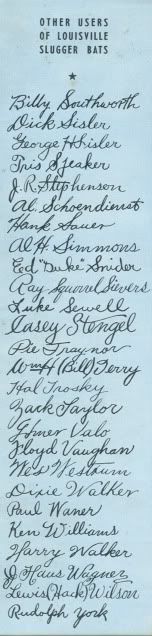 OTHER USERS
OF LOUISVILLE
SLUGGER BATS
★
Billy Southworth
Dick Sisler
George H Sisler
Tris Speaker
J. R. Stephenson
Al. Schoendienst
Hank Sauer
Al H. Simmons
Ed "Duke" Snider
Ray Squirrel Sievers
Luke Sewell
Casey Stengel
Pie Traynor
Wm H (Bill) Terry
Hal Trosky
Zack Taylor
Elmer Valo
Floyd Vaughan
Wes Westrum
Dixie Walker
Paul Waner
Ken Williams
Harry Walker
J. Hans Wagner
Lewis (Hack) Wilson
Rudolph York